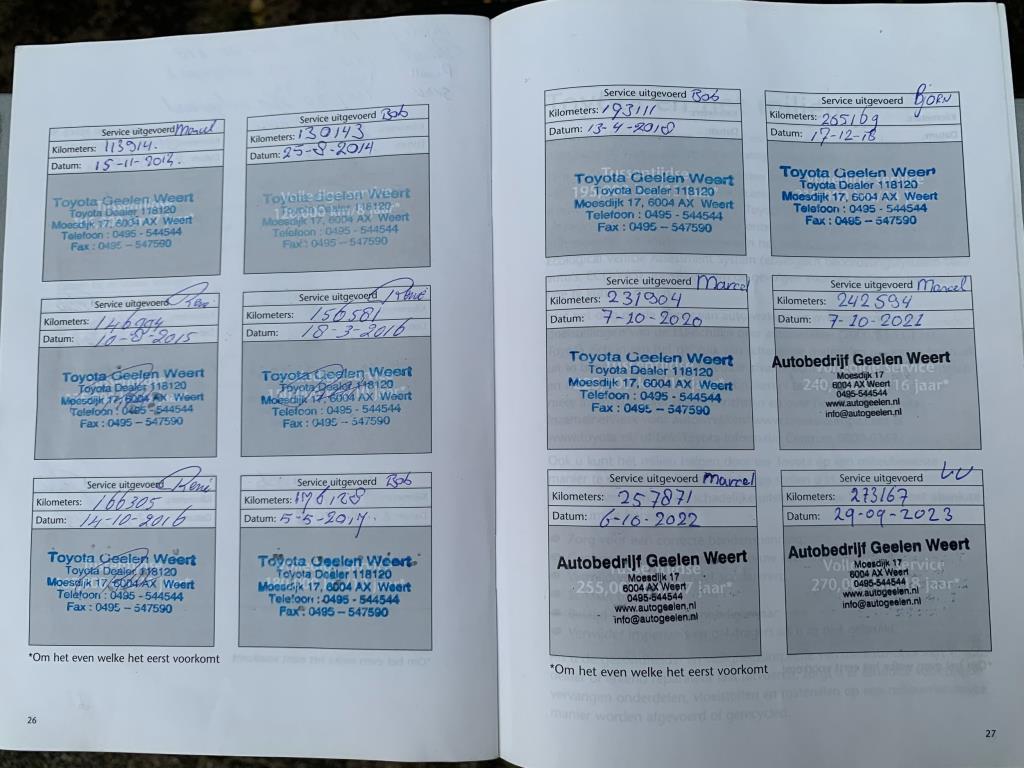 Service uitgevoerd Marcel
Kilometers: 113914.
Datum: 15-11-2013.
Toyota Geelen Weert
Toyota Dealer 118120
Moesdijk 17, 6004 AX Weert
Telefoon : 0495 - 544544
Fax : 0495 - 547590
Service uitgevoerd Bob
Kilometers: 130143
Datum: 25-8-2014
Toyota Geelen Weert
Toyota Dealer 118120
Moesdijk 17, 6004 AX Weert
Telefoon : 0495 - 544544
Fax : 0495 - 547590
Service uitgevoerd René
Kilometers: 146994
Datum: 10-8-2015
Toyota Geelen Weert
Toyota Dealer 118120
Moesdijk 17, 6004 AX Weert
Telefoon : 0495 - 544544
Fax : 0495 - 547590
Service uitgevoerd René
Kilometers: 156581
Datum: 18-3-2016
Toyota Geelen Weert
Toyota Dealer 118120
Moesdijk 17, 6004 AX Weert
Telefoon : 0495 - 544544
Fax : 0495 - 547590
Service uitgevoerd René
Kilometers: 166305
Datum: 14-10-2016
Toyota Geelen Weert
Toyota Dealer 118120
Moesdijk 17, 6004 AX Weert
Telefoon : 0495 - 544544
Fax : 0495 - 547590
Service uitgevoerd Bob
Kilometers: 176128
Datum: 5-5-2017.
Toyota Geelen Weert
Toyota Dealer 118120
Moesdijk 17, 6004 AX Weert
Telefoon : 0495 - 544544
Fax : 0495 - 547590
*Om het even welke het eerst voorkomt
26
Service uitgevoerd Bob
Kilometers: 193111
Datum: 13-4-2018
Toyota Geelen Weert
Toyota Dealer 118120
Moesdijk 17, 6004 AX Weert
Telefoon : 0495 - 544544
Fax : 0495 - 547590
Service uitgevoerd BJORN
Kilometers: 205169
Datum: 17-12-18
Toyota Geelen Weert
Toyota Dealer 118120
Moesdijk 17, 6004 AX Weert
Telefoon : 0495 - 544544
Fax : 0495 - 547590
Service uitgevoerd Marcel
Kilometers: 231904
Datum: 7-10-2020
Toyota Geelen Weert
Toyota Dealer 118120
Moesdijk 17, 6004 AX Weert
Telefoon : 0495 - 544544
Fax : 0495 - 547590
Service uitgevoerd Marcel
Kilometers: 242594
Datum: 7-10-2021
Autobedrijf Geelen Weert
Moesdijk 17
6004 AX Weert
0495-544544
www.autogeelen.nl
info@autogeelen.nl
Service uitgevoerd Marcel
Kilometers: 257871
Datum: 6-10-2022
Autobedrijf Geelen Weert
Moesdijk 17
6004 AX Weert
0495-544544
www.autogeelen.nl
info@autogeelen.nl
Service uitgevoerd
Kilometers: 273167
Datum: 29-09-2023
Autobedrijf Geelen Weert
Moesdijk 17
6004 AX Weert
0495-544544
www.autogeelen.nl
info@autogeelen.nl
*Om het even welke het eerst voorkomt
27